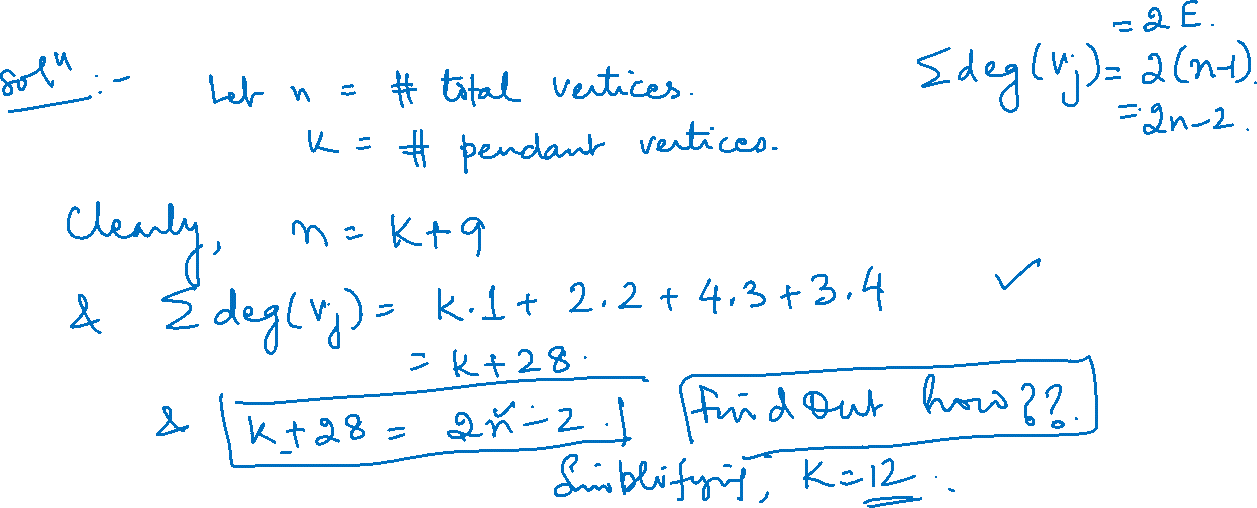 Solⁿ :- Let n = # total vertices.
K = # pendant vertices.
Σdeg(vj) = 2E.
= 2(n-1).
= 2n-2.
Clearly, n = K+9
& Σdeg(vj) = K.1 + 2.2 + 4.3 + 3.4 ✓
= K+28.
& K+28 = 2n-2. Find Out how??.
Simplifying, K=12.